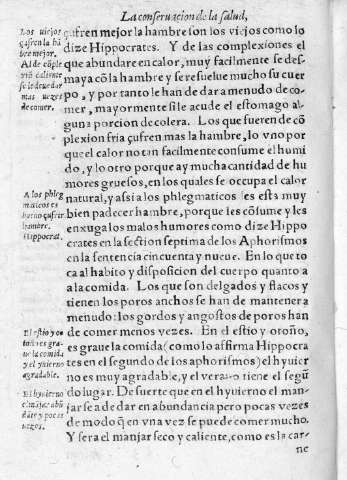 La conseruacion de la salud,
Los viejos
çufren la hã
bre mejor.
Al de cõple
xiõ caliente
se le de dar
mas vezes
de comer.
çufren mejor la hambre son los viejos como lo
dize Hippocrates. Y de las complexiones el
que abundare en calor, muy facilmente se des-
maya cõ la hambre y se resuelue mucho su cuer
po, y por tanto le han de dar a menudo de co-
mer, mayormente si le acude el estomago al-
guna porcion de colera. Los que fueren de cõ
plexion fria çufren mas la hambre, lo vno por
que el calor no tan facilmente consume el humi
do, y lo otro porque ay mucha cantidad de hu
mores gruesos, en los quales se occupa el calor
A los phleg
maticos es
bueno çufrir
hambre.
Hippocrat.
natural, y assi a los phlegmaticos les esta muy
bien padecer hambre, porque les cõsume y les
enxuga los malos humores como dize Hippo
crates en la section septima de los Aphorismos
en la sentencia cincuenta y nueue. En lo que to
ca al habito y disposicion del cuerpo quanto a
a la comida. Los que son delgados y flacos y
tienen los poros anchos se han de mantener a
menudo: los gordos y angostos de poros han
El estio y oto
ño es gra-
ue la comida
y el yuierno
agradable.
de comer menos vezes. En el estio y otoño,
es graue la comida (como lo affirma Hippocra
tes en el segundo de los aphorismos) el hyuier
no es muy agradable, y el verano tiene el segũ
El hyuierno
el mãjar abũ
dãte y pocas
vezes.
do lugar. De suerte que en el hyuierno el man-
jar se a de dar en abundancia pero pocas vezes
de modo q̃ en vna vez se puede comer mucho.
Y sera el manjar seco y caliente, como es la car-
ne